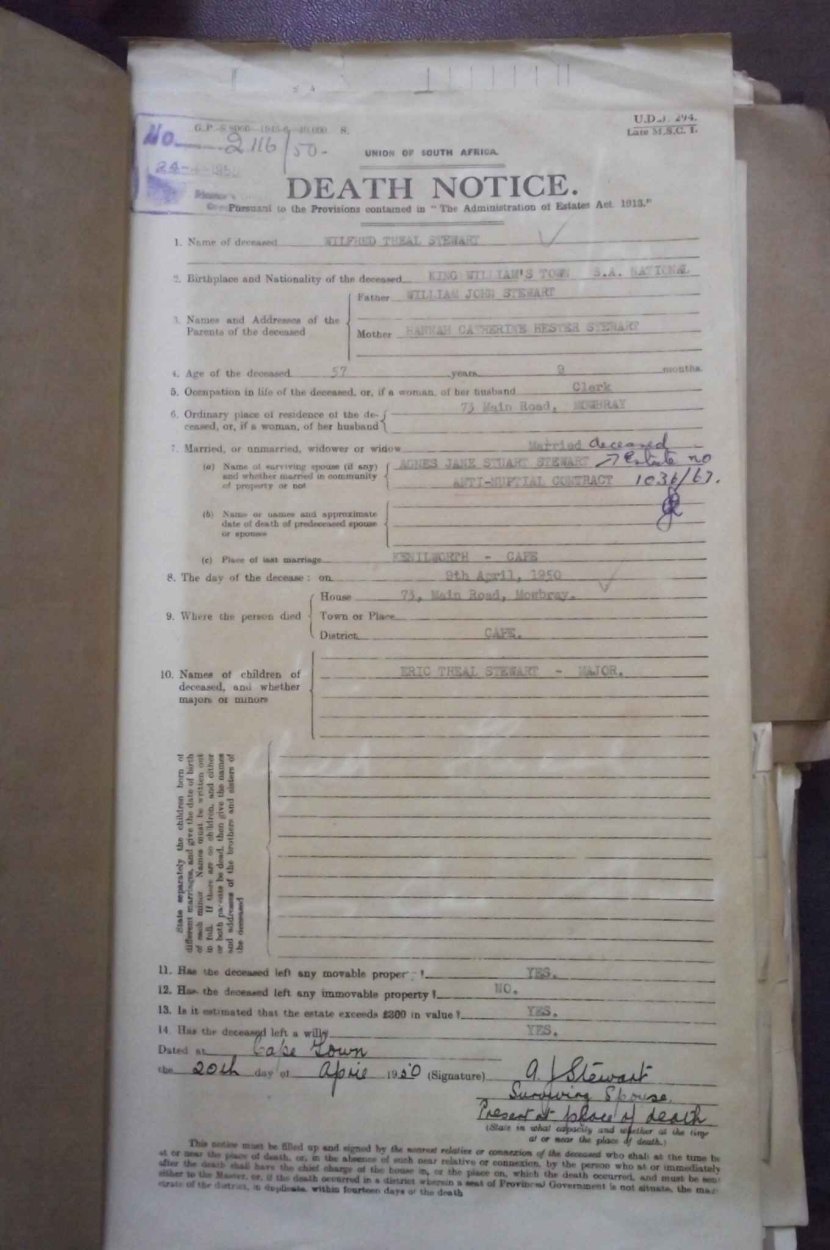 U.D.J. 294.
Late M.S.C. 1.
No. 2116/50-
UNION OF SOUTH AFRICA.
DEATH NOTICE.
Pursuant to the Provisions contained in "The Administration of Estates Act. 1913."
1. Name of deceased WILFRED THEAL STEWART
2. Birthplace and Nationality of the deceased KING WILLIAM'S TOWN S.A. NATIONAL
3. Names and Addresses of the Parents of the deceased
Father WILLIAM JOHN STEWART
Mother HANNAH CATHERINE HESTER STEWART
4. Age of the deceased 57 years 9 months.
5. Occupation in life of the deceased, or, if a woman, of her husband Clerk
6. Ordinary place of residence of the de-
ceased, or, if a woman, of her husband 73 Main Road, MOWBRAY
7. Married, or unmarried, widower or widow Married deceased
(a) Name of surviving spouse (if any)
and whether married in community
of property or not
AGNES JANE STUART STEWART Estate no
ANTI-NUPTIAL CONTRACT 1036/67.
(b) Name or names and approximate
date of death of predeceased spouse
or spouses
(c) Place of last marriage KENILWORTH - CAPE
8. The day of the decease: on 9th April, 1950
9. Where the person died
House 73, Main Road, Mowbray.
Town or Place
District CAPE.
10. Names of children of
deceased, and whether
majors or minors
ERIC THEAL STEWART - MAJOR.
State separately the children born of
different marriages, and give the date of birth
of each minor. Names must be written out
in full. If there are no children, and either
or both parents be dead, then give the names
and addresses of the brothers and sisters of
the deceased
11. Has the deceased left any movable property? YES.
12. Has the deceased left any immovable property? NO.
13. Is it estimated that the estate exceeds £300 in value? YES.
14. Has the deceased left a will? YES.
Dated at Cape Town
the 20th day of April 1950 (Signature) A J Stewart
Surviving Spouse.
Present at place of death
(State in what capacity and whether at the time
at or near the place of death.)
This notice must be filled up and signed by the nearest relative or connexion of the deceased who shall at the time be
at or near the place of death, or, in the absence of such near relative or connexion, by the person who at or immediately
after the death shall have the chief charge of the house in, or the place on, which the death occurred, and must be sent
either to the Master, or, if the death occurred in a district wherein a seat of Provincial Government is not situate, the
of the district, in duplicate, within fourteen days of the death